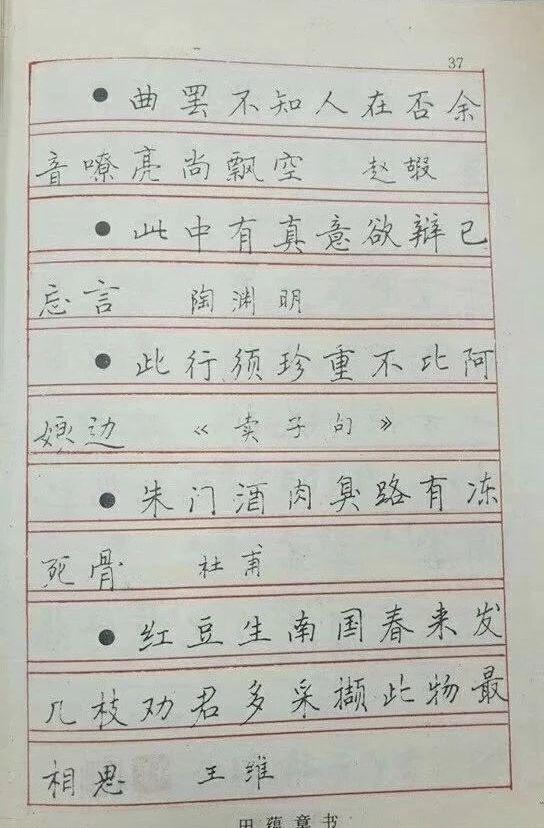 37
● 曲罢不知人在否余
音嘹亮尚飘空 赵嘏
● 此中有真意欲辩已
忘言 陶渊明
● 此行须珍重不比阿
娘边 《卖子句》
● 朱门酒肉臭路有冻
死骨 杜甫
● 红豆生南国春来发
几枝劝君多采撷此物最
相思 王维
田蕴章书